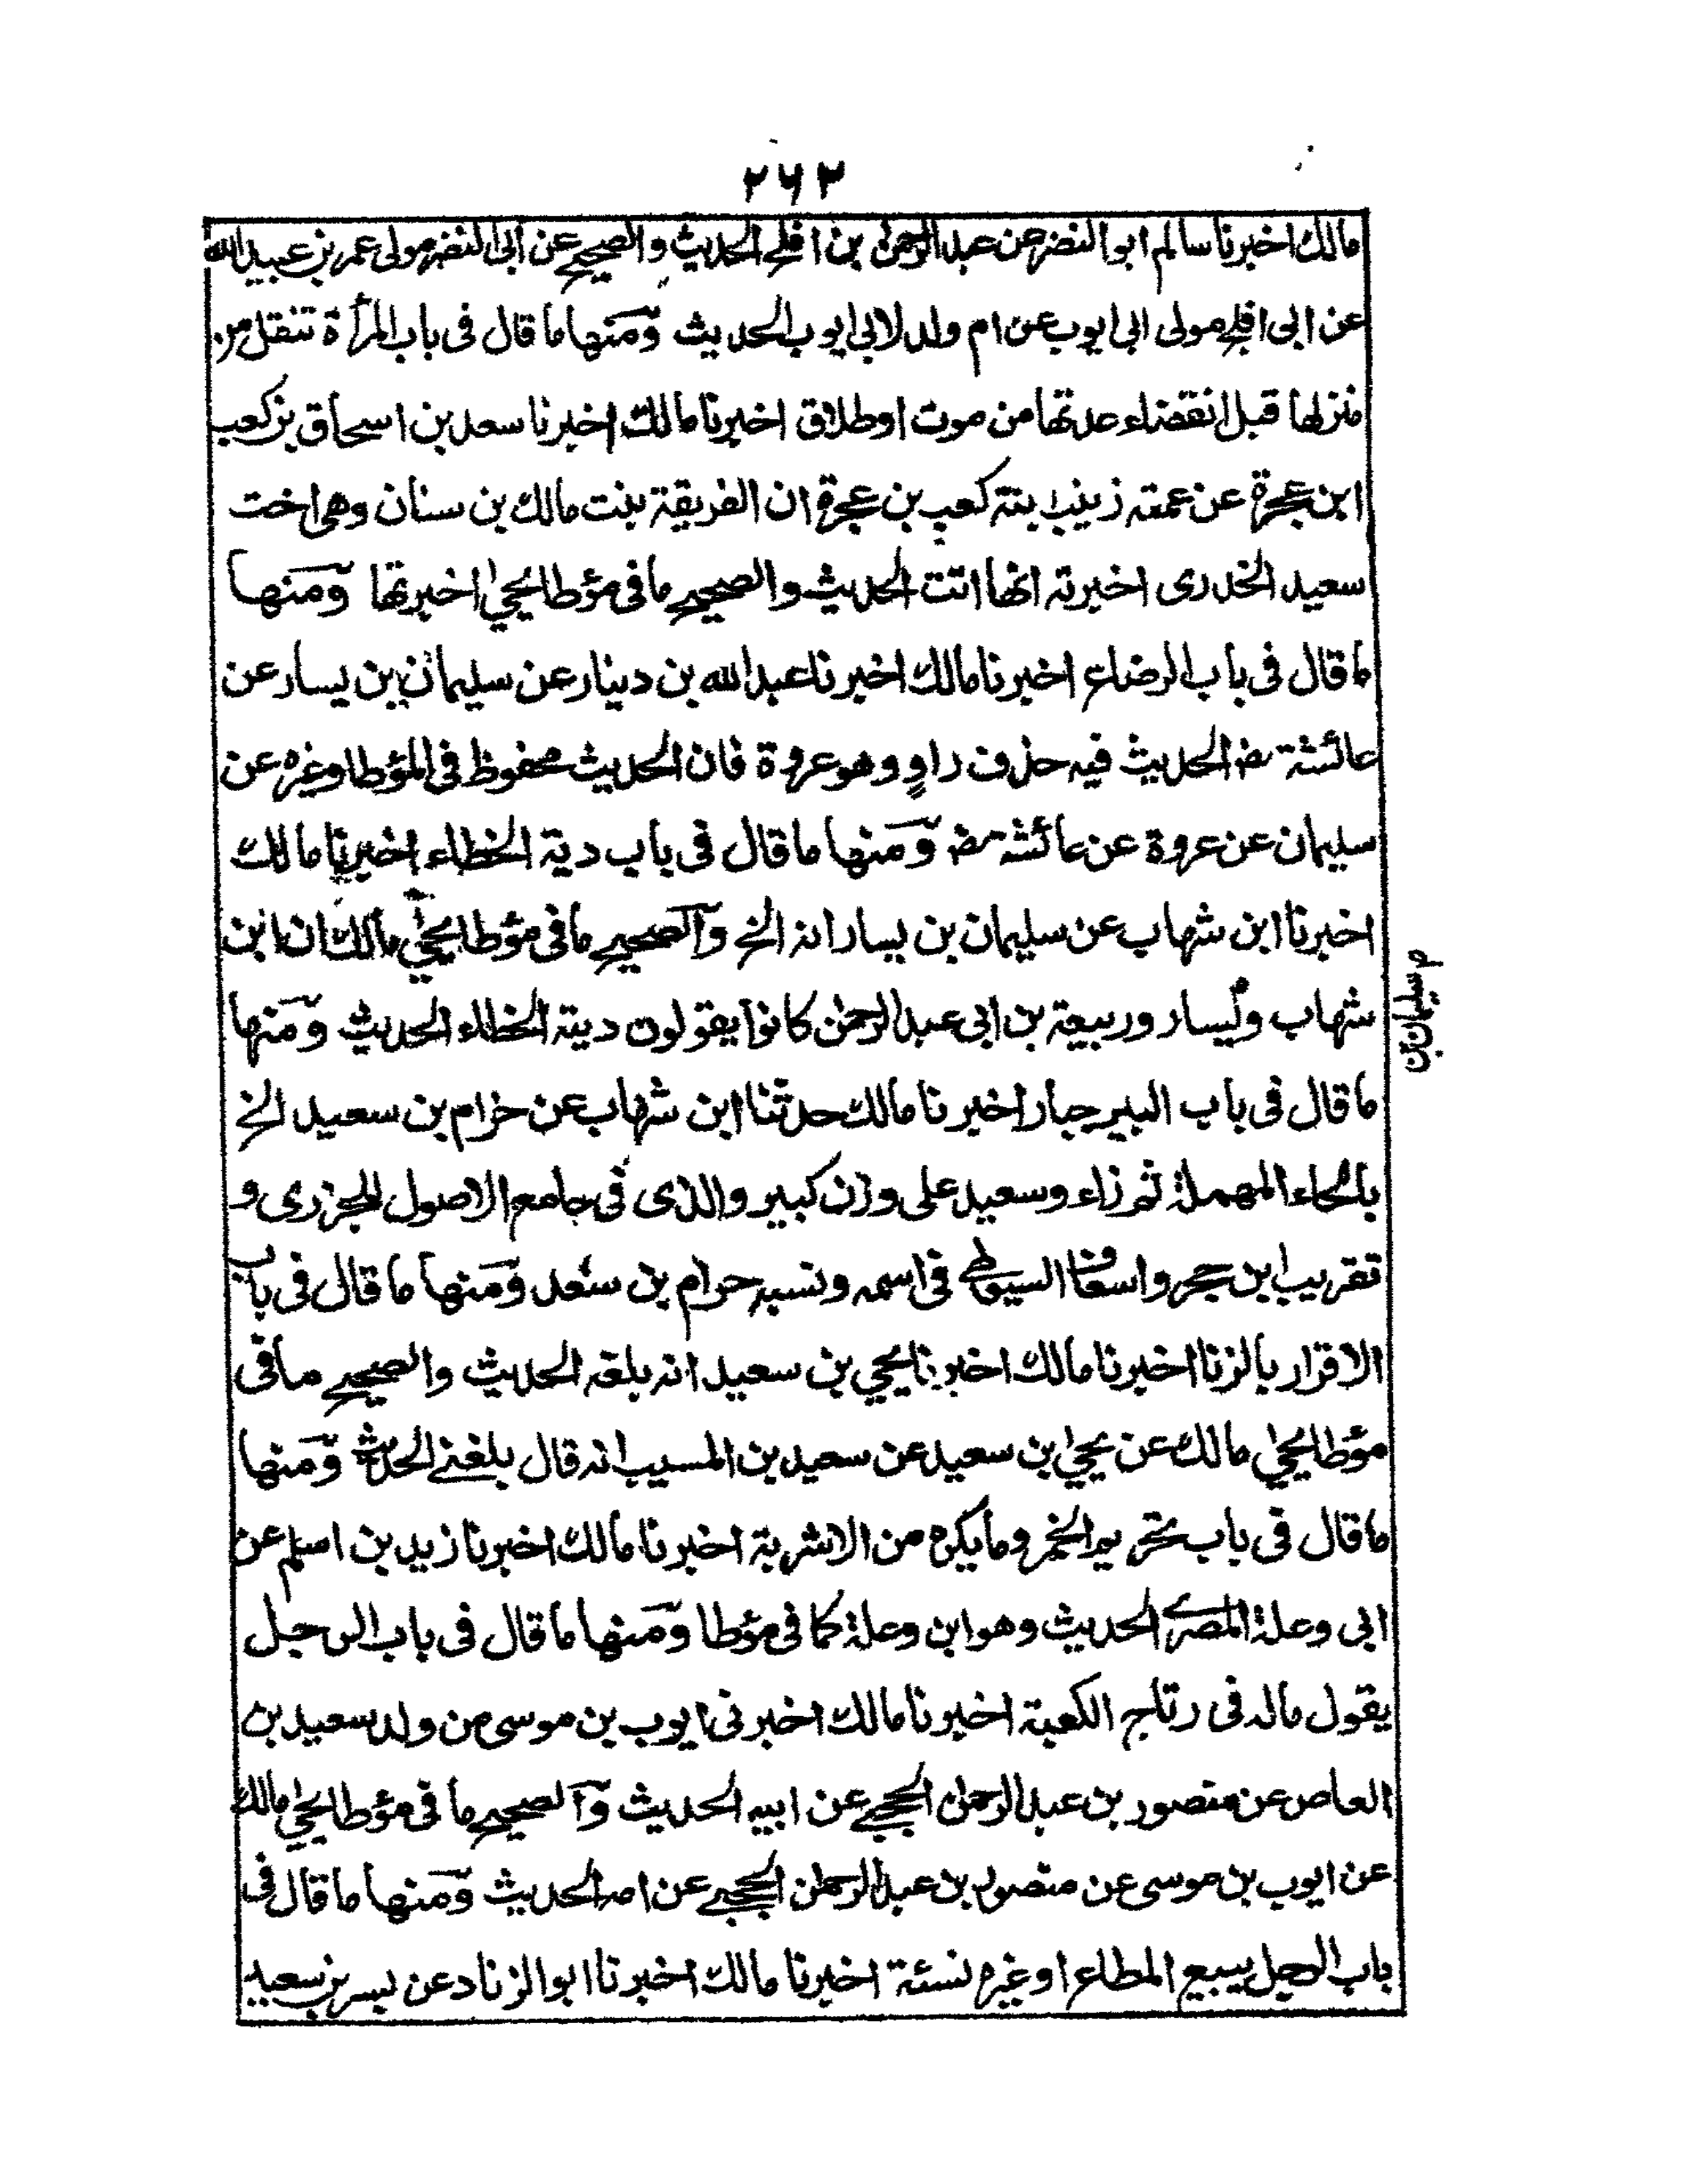 ۲۶۲
مالك اخبرنا سالم ابو النضر عن عبد الرحمٰن بن افلح الحديث والصحيح عن ابى النضر مولى عمر بن عبيد الله
عن ابى افلح مولى ابى ايوب عن ام ولد لابى ايوب الحديث ومنها ما قال فى باب المرأة تنقل من
منزلها قبل انقضاء عدتها من موت او طلاق اخبرنا مالك اخبرنا سعد بن اسحاق بن كعب
ابن عجرة عن عمته زينب ابنة كعب بن عجرة ان الفريقة بنت مالك بن سنان وهى اخت
سعيد الخدرى اخبرته انها اتت الحديث والصحيح ما فى مؤطا يحيىٰ اخبرتها ومنها
ما قال فى باب الرضاع اخبرنا مالك اخبرنا عبد الله بن دينار عن سليمان بن يسار عن
عائشة رض الحديث فيه حذف راوٍ وهو عروة فان الحديث محفوظ فى المؤطا وغيره عن
سليمان عن عروة عن عائشة رض ومنها ما قال فى باب دية الخطاء اخبرنا مالك
اخبرنا ابن شهاب عن سليمان بن يسار انه الخ والصحيح ما فى مؤطا يحيىٰ مالك ان ابن
شهاب و يسار وربيعة بن ابى عبد الرحمٰن كانوا يقولون دية الخطاء الحديث ومنها
م سليمان بن
ما قال فى باب البير جبار اخبرنا مالك حدثنا ابن شهاب عن حزام بن سعيد الخ
بالحاء المهملة ثم زاء وسعيد على وزن كبير والذى فى جامع الاصول للجزرى و
تقريب ابن حجر واسعاف السيوطى فى اسمه ونسبه حرام بن سعد ومنها ما قال فى باب
الاقرار بالزنا اخبرنا مالك اخبرنا يحيى بن سعيد انه بلغه الحديث والصحيح ما فى
مؤطا يحيىٰ مالك عن يحيىٰ بن سعيد عن سعيد بن المسيب انه قال بلغنى الحديث ومنها
ما قال فى باب تحريم الخمر وما يكره من الاشربة اخبرنا مالك اخبرنا زيد بن اسلم عن
ابى وعلة المصرى الحديث وهو ابن وعلة كما فى مؤطا ومنها ما قال فى باب الرجل
يقول ماله فى رتاج الكعبة اخبرنا مالك اخبرنى ايوب بن موسى من ولد سعيد بن
العاص عن منصور بن عبد الرحمٰن الحجبى عن ابيه الحديث والصحيح ما فى مؤطا يحيىٰ مالك
عن ايوب بن موسى عن منصور بن عبد الرحمٰن الحجبى عن امه الحديث ومنها ما قال فى
باب الرجل يبيع المطاع او غيره نسئة اخبرنا مالك اخبرنا ابو الزناد عن بسر بن سعيد